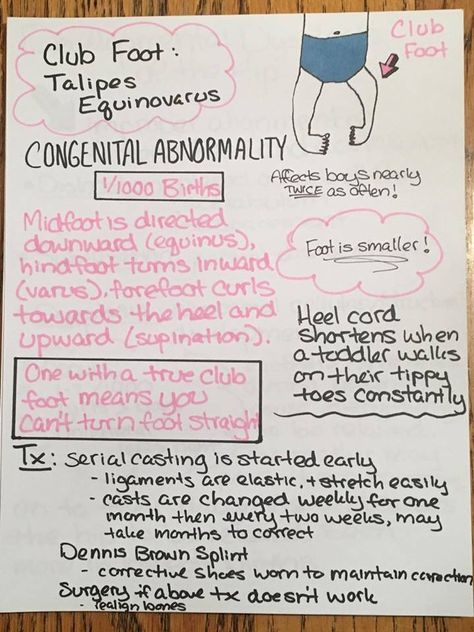 Club Foot:
Talipes
Equinovarus
Club
Foot
CONGENITAL ABNORMALITY
1/1000 Births
Affects boys nearly
TWICE as often!
Midfoot is directed
downward (equinus),
hindfoot turns inward
(varus), forefoot curls
towards the heel and
upward (supination).
Foot is smaller!
Heel cord
shortens when
a toddler walks
on their tippy
toes constantly
One with a true club
foot means you
can't turn foot straight
Tx: serial casting is started early
- ligaments are elastic, + stretch easily
- casts are changed weekly for one
month then every two weeks, may
take months to correct
Dennis Brown Splint
- corrective shoes worn to maintain correction
Surgery if above tx doesn't work
- realign bones